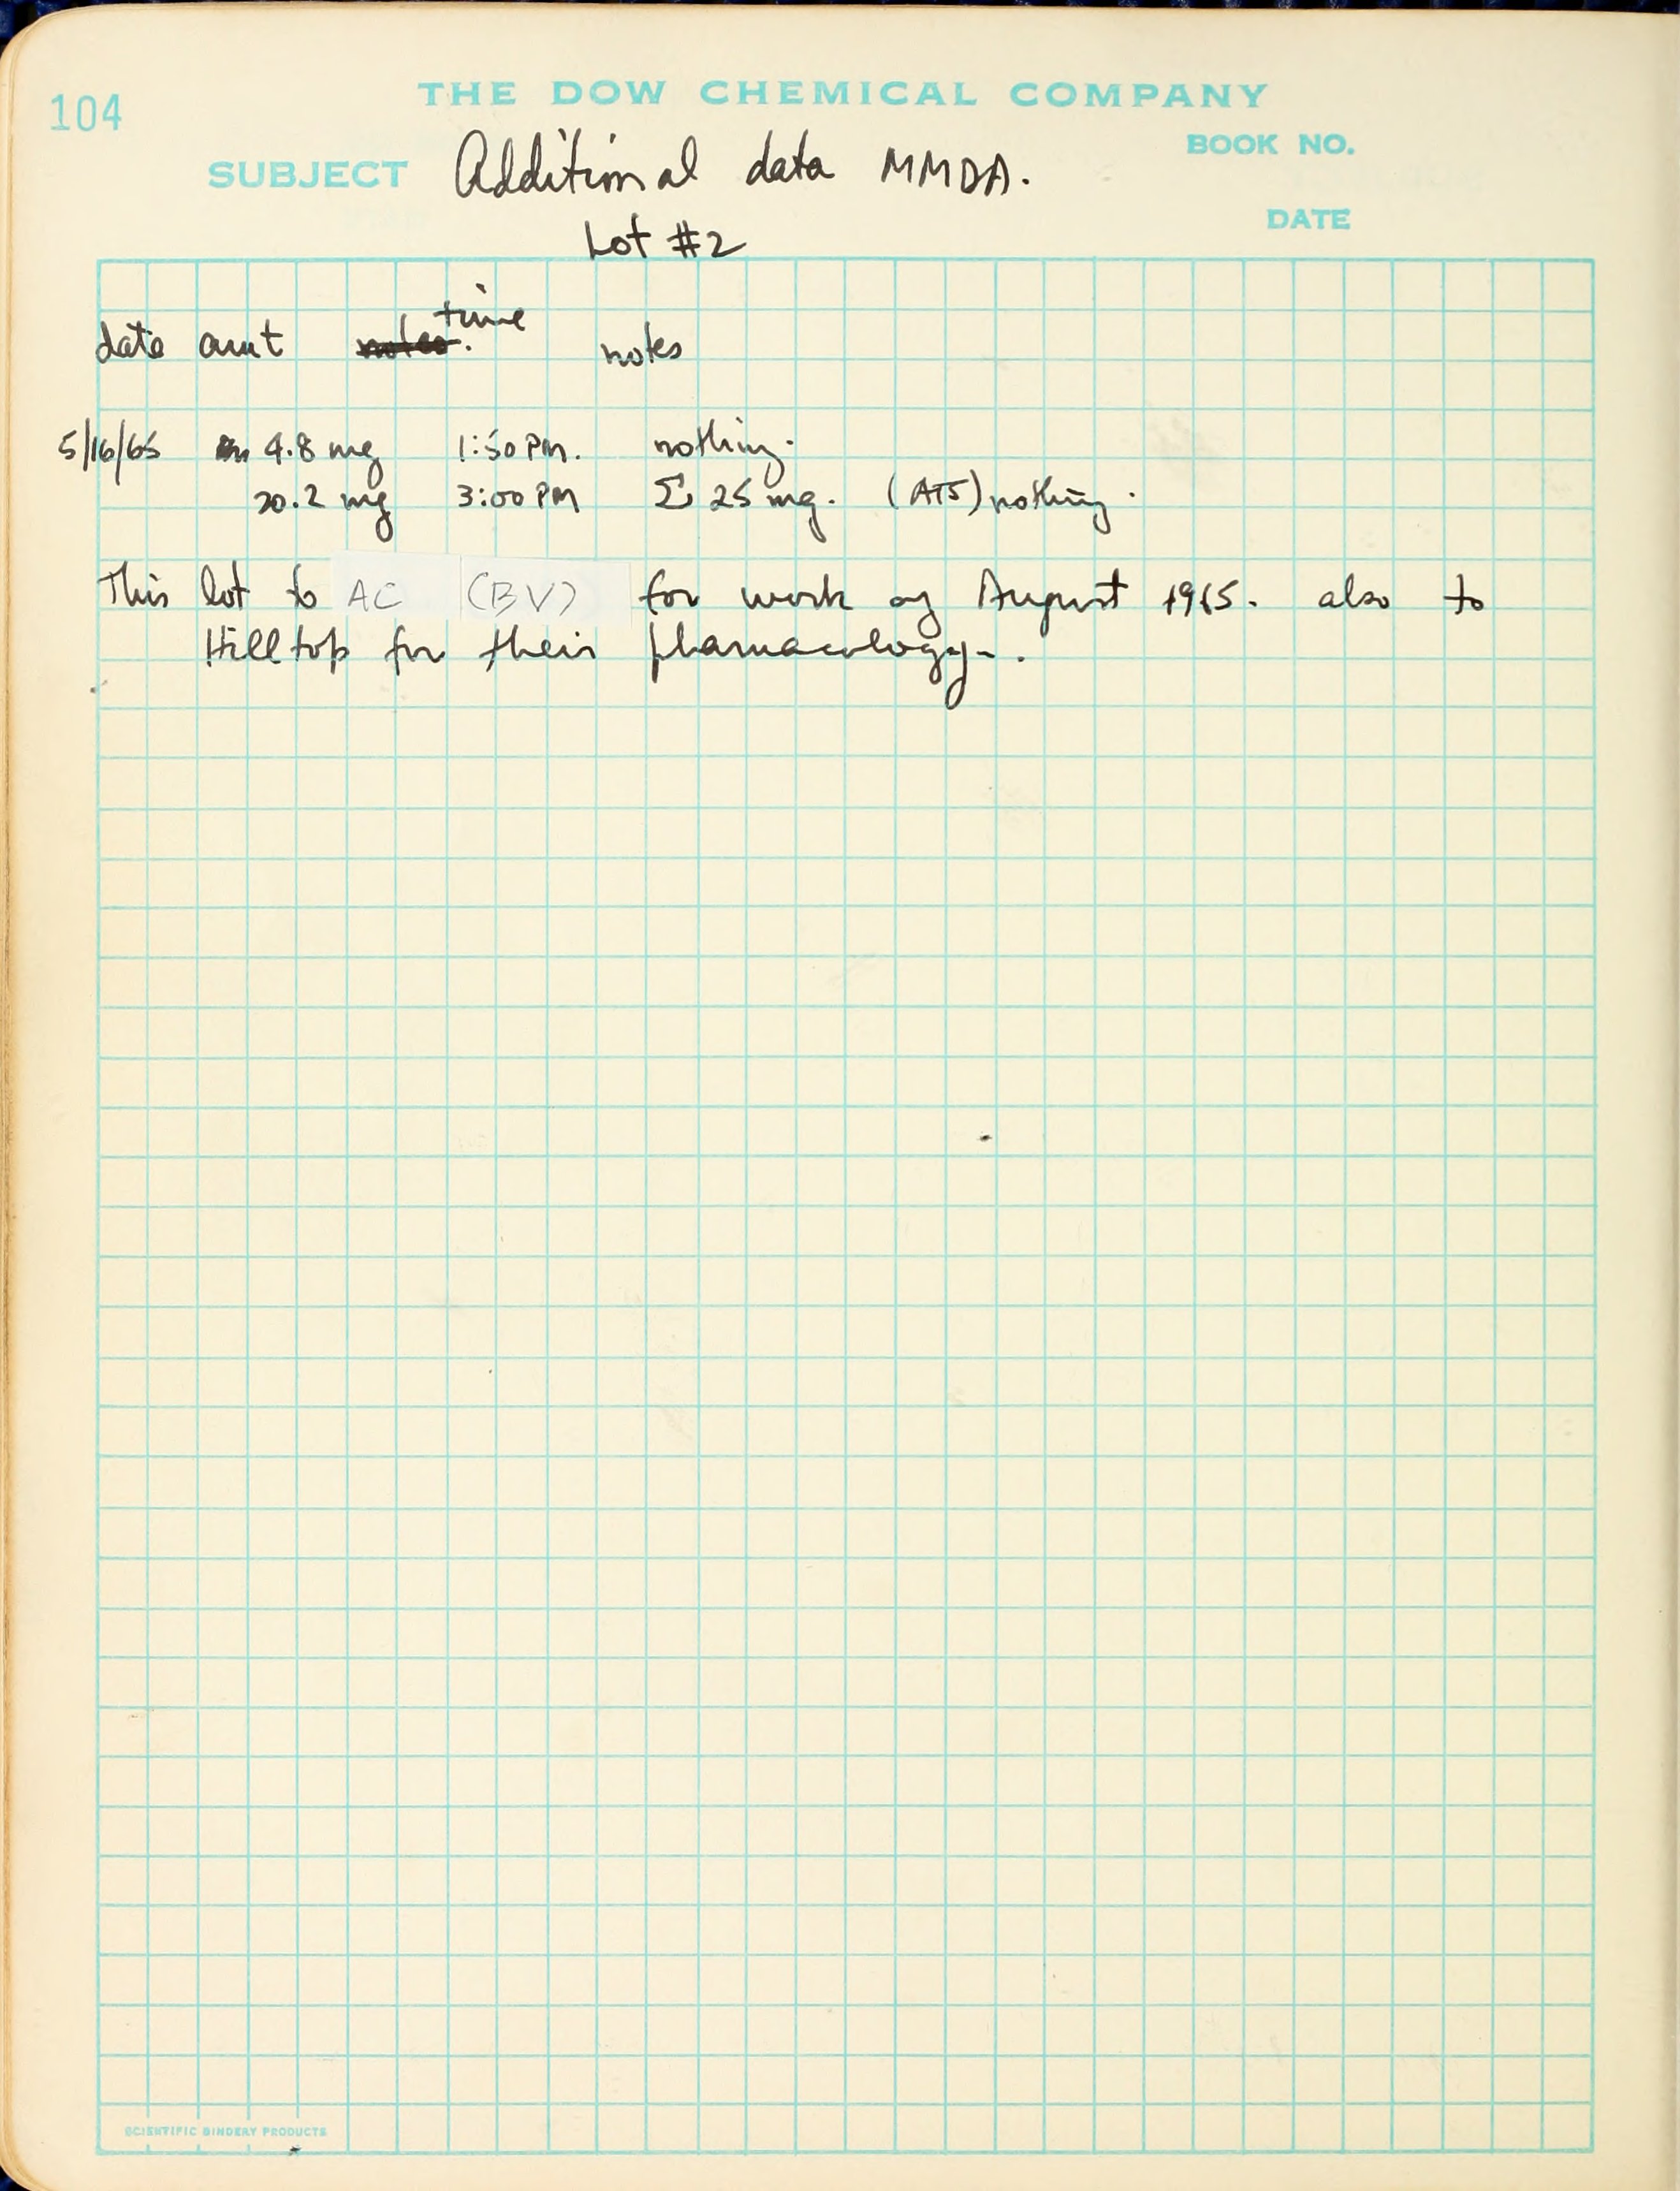 104
THE DOW CHEMICAL COMPANY
BOOK NO.
SUBJECT Additional data MMDA.
DATE
Lot #2
time
date amt notes. notes
5/16/65 4.8 mg 1:50 PM. nothing.
20.2 mg 3:00 PM Σ 25 mg. (ATS) nothing.
This lot to AC (BV) for work of August 1965. also to
Hilltop for their pharmacology.
SCIENTIFIC BINDERY PRODUCTS